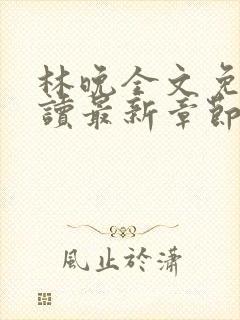 林晚全文免
讀最新章節
風止於瀟